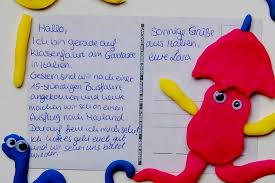 Hallo,
Ich bin gerade auf
Klassenfahrt am Gardasee
in Italien.
Gestern sind wir nach einer
15-stündigen Busfahrt
angekommen und heute
machen wir schon einen
Ausflug nach Mailand.
Darauf freue ich mich sehr!
Ich hoffe es geht euch gut
und wir sehen uns bald
wieder.
Sonnige Grüße
aus Italien,
eure Lara